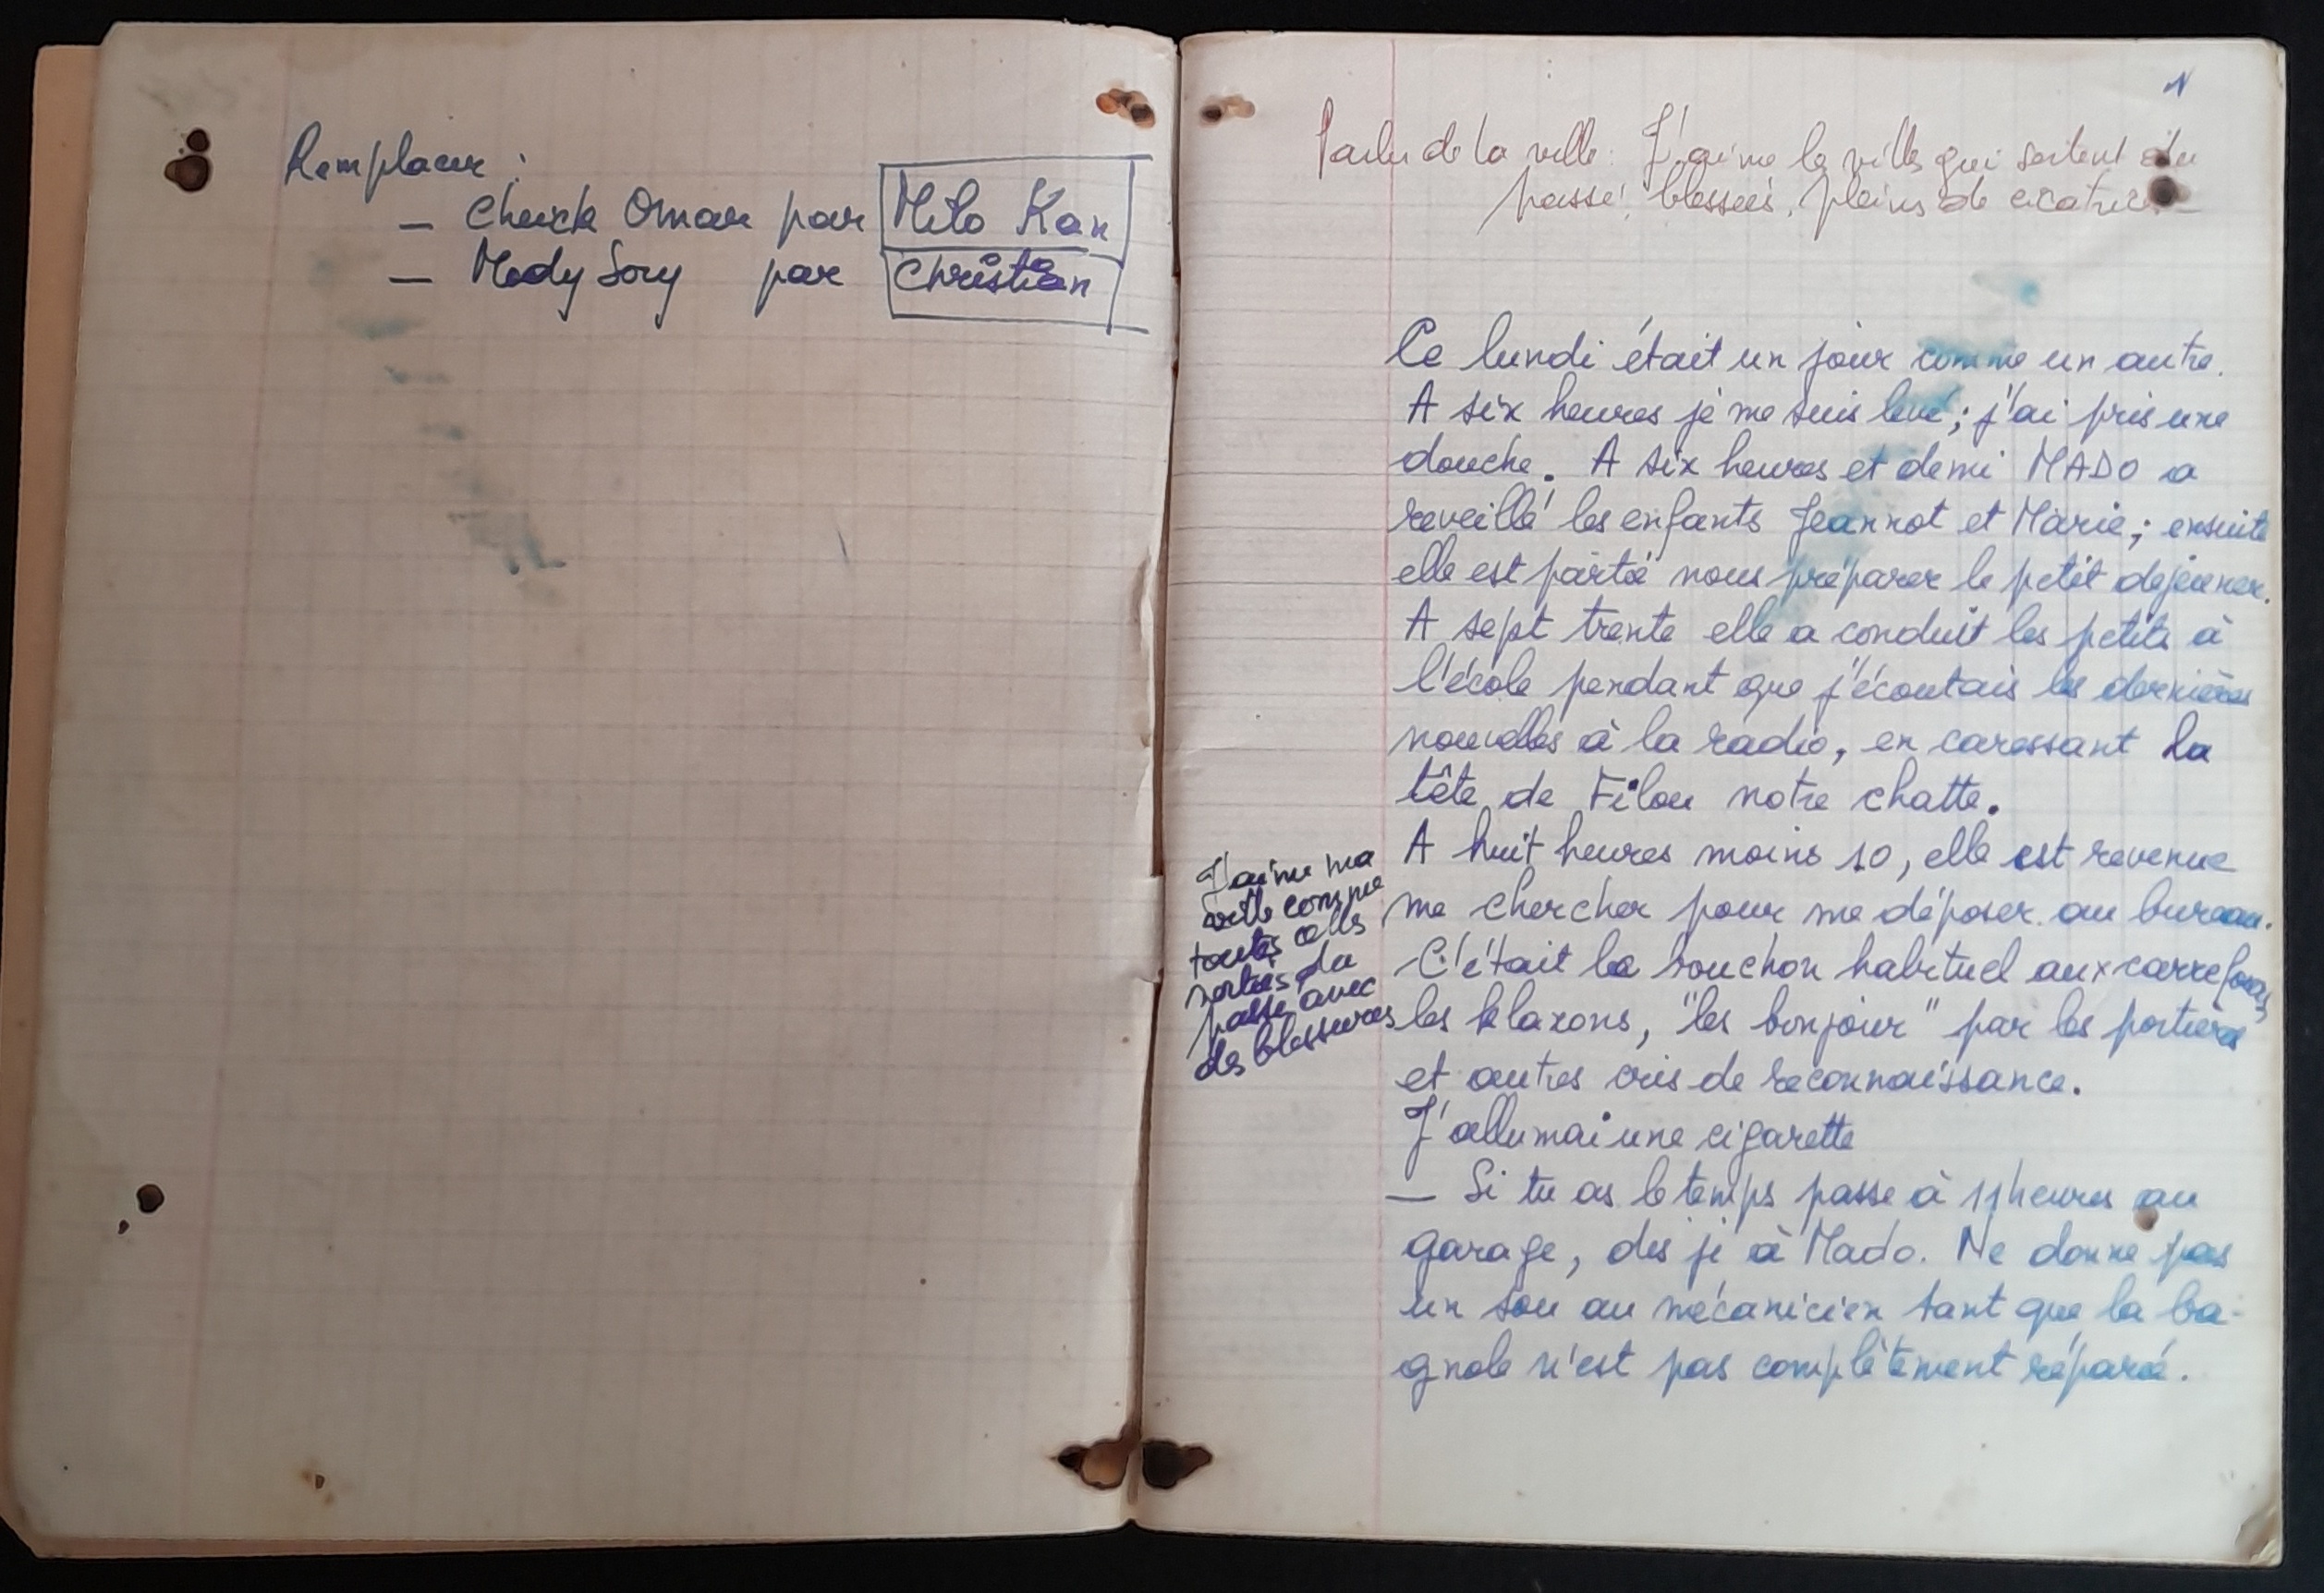 Remplacer :
— Cheick Omar par Milo Kan
— Mody Sory par Christian
1
Parler de la ville : J'aime les villes qui sortent du
passé, blessées, pleins de cicatrices
Ce lundi était un jour comme un autre.
A six heures je me suis levé ; j'ai pris une
douche. A six heures et demi MADO a
reveillé les enfants Jeannot et Marie ; ensuite
elle est partie nous préparer le petit dejeuner.
A sept trente elle a conduit les petits à
l'école pendant que j'écoutais les dernières
nouvelles à la radio, en caressant la
tête de Filou notre chatte.
A huit heures moins 10, elle est revenue
me chercher pour me déposer au bureau.
C'était le bouchon habituel aux carrefours,
les klaxons, "les bonjour" par les portières
et autres cris de reconnaissance.
J'allumai une cigarette
— Si tu as le temps passe à 11 heures au
garage, dis je à Mado. Ne donne pas
un sou au mécanicien tant que la ba-
gnole n'est pas complètement réparée.
J'aime ma
ville comme
toutes celles
sorties du
passé avec
des blessures